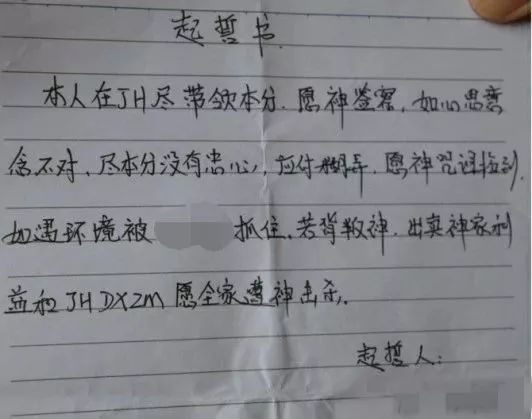 起哲书
本人在JH尽带领本分.愿神鉴察,如心思意
念不对、尽本分没有忠心,应付糊弄.愿神咒诅临到.
如遇环境被 抓住、若背叛神.出卖神家利
益和JHDXZM愿全家遭神击杀.
起哲人: